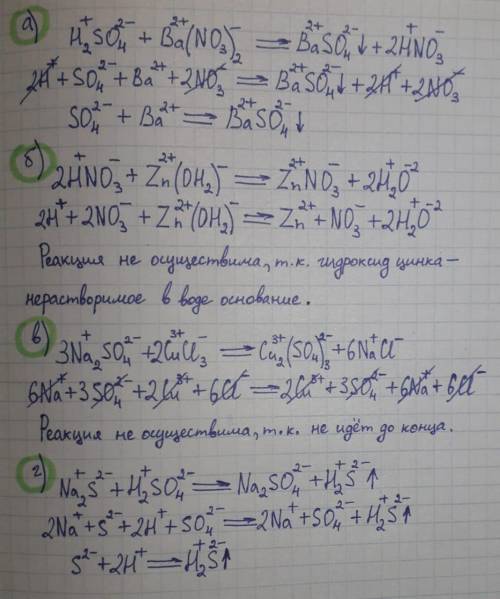 а) H₂⁺SO₄²⁻ + Ba²⁺(NO₃)₂⁻ = Ba²⁺SO₄²⁻↓ + 2H⁺NO₃⁻
2H⁺ + SO₄²⁻ + Ba²⁺ + 2NO₃⁻ = Ba²⁺SO₄²⁻↓ + 2H⁺ + 2NO₃⁻
SO₄²⁻ + Ba²⁺ = Ba²⁺SO₄²⁻↓
б) 2H⁺NO₃⁻ + Zn²⁺(OH₂)⁻ = Zn²⁺NO₃⁻ + 2H₂⁺O⁻²
2H⁺ + 2NO₃⁻ + Zn²⁺(OH₂)⁻ = Zn²⁺ + NO₃⁻ + 2H₂⁺O⁻²
Реакция не осуществима, т.к. гидроксид цинка –
нерастворимое в воде основание.
в) 3Na₂⁺SO₄²⁻ + 2Cu³⁺Cl₃⁻ = Cu₂³⁺(SO₄)₃²⁻ + 6Na⁺Cl⁻
6Na⁺ + 3SO₄²⁻ + 2Cu³⁺ + 6Cl⁻ = 2Cu³⁺ + 3SO₄²⁻ + 6Na⁺ + 6Cl⁻
Реакция не осуществима, т.к. не идёт до конца.
г) Na₂⁺S²⁻ + H₂⁺SO₄²⁻ = Na₂⁺SO₄²⁻ + H₂⁺S²⁻↑
2Na⁺ + S²⁻ + 2H⁺ + SO₄²⁻ = 2Na⁺ + SO₄²⁻ + H₂⁺S²⁻↑
S²⁻ + 2H⁺ = H₂⁺S²⁻↑